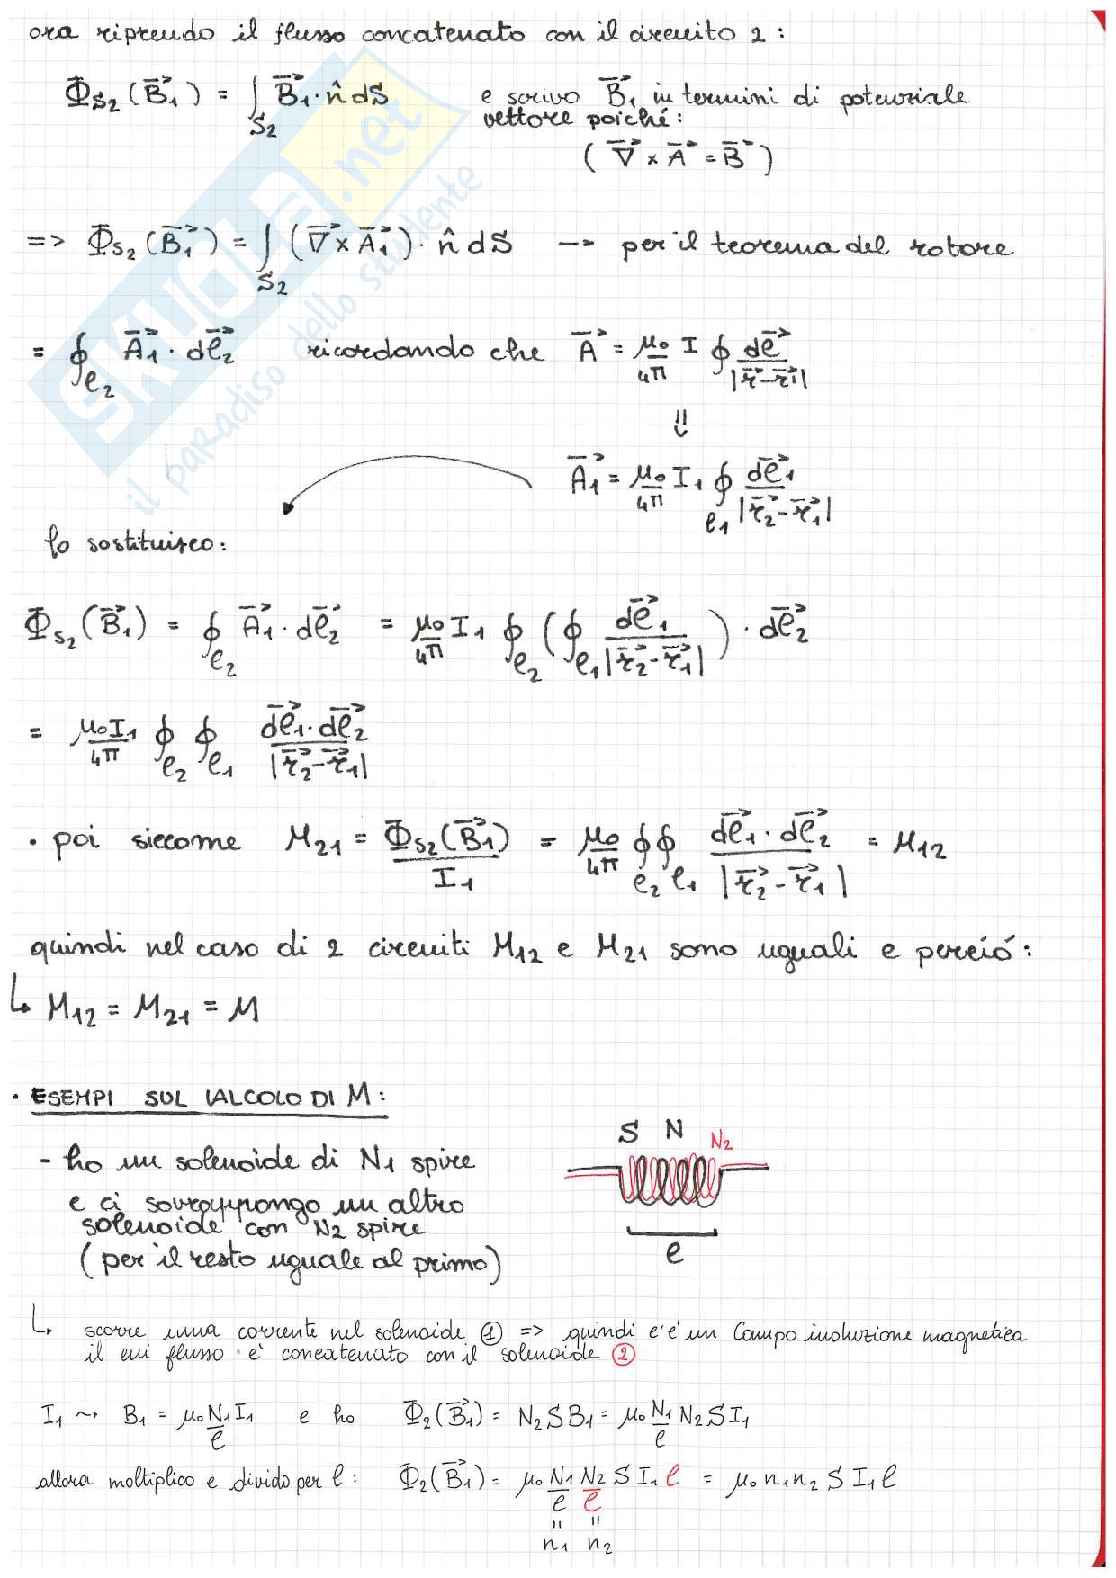 ora riprendo il flusso concatenato con il circuito 2 :
Φ_S2 (B⃗₁) = ∫_S2 B⃗₁ · n̂ dS e scrivo B⃗₁ in termini di potenziale
vettore poiché:
( ∇⃗ × A⃗ = B⃗ )
=> Φ_S2 (B⃗₁) = ∫_S2 (∇⃗ × A⃗₁) · n̂ dS → per il teorema del rotore
= ∮_ℓ2 A⃗₁ · dℓ⃗₂ ricordando che A⃗ = μ₀/4π I ∮ dℓ⃗/|r⃗-r⃗'|
⇓
A⃗₁ = μ₀/4π I₁ ∮_ℓ1 dℓ⃗₁/|r⃗₂-r⃗₁|
lo sostituisco:
Φ_S2 (B⃗₁) = ∮_ℓ2 A⃗₁ · dℓ⃗₂ = μ₀/4π I₁ ∮_ℓ2 ( ∮_ℓ1 dℓ⃗₁/|r⃗₂-r⃗₁| ) · dℓ⃗₂
= μ₀I₁/4π ∮_ℓ2 ∮_ℓ1 dℓ⃗₁·dℓ⃗₂/|r⃗₂-r⃗₁|
· poi siccome M₂₁ = Φ_S2(B⃗₁)/I₁ = μ₀/4π ∮_ℓ2 ∮_ℓ1 dℓ⃗₁·dℓ⃗₂/|r⃗₂-r⃗₁| = M₁₂
quindi nel caso di 2 circuiti M₁₂ e M₂₁ sono uguali e perció:
↳ M₁₂ = M₂₁ = M
· ESEMPI SUL CALCOLO DI M:
S N N₂
- ho un solenoide di N₁ spire
e ci sovrappongo un altro
solenoide con N₂ spire
ℓ
(per il resto uguale al primo)
↳ scorre una corrente nel solenoide ① => quindi c'è un Campo induzione magnetica
il cui flusso è concatenato con il solenoide ②
I₁ ⤳ B₁ = μ₀ N₁/ℓ I₁ e ho Φ₂(B⃗₁) = N₂SB₁ = μ₀ N₁/ℓ N₂ S I₁
allora moltiplico e divido per ℓ: Φ₂(B⃗₁) = μ₀ N₁/ℓ N₂/ℓ S I₁ ℓ = μ₀ n₁ n₂ S I₁ ℓ
= =
n₁ n₂
SKUOLA.net
il paradiso dello studente